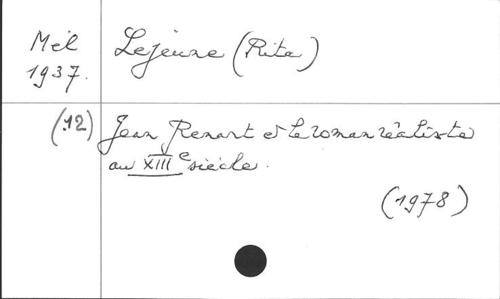 Mél
1937.
Lejeune (Rita)
(12)
Jean Renart et le roman réaliste
au XIIIe siècle.
(1978)